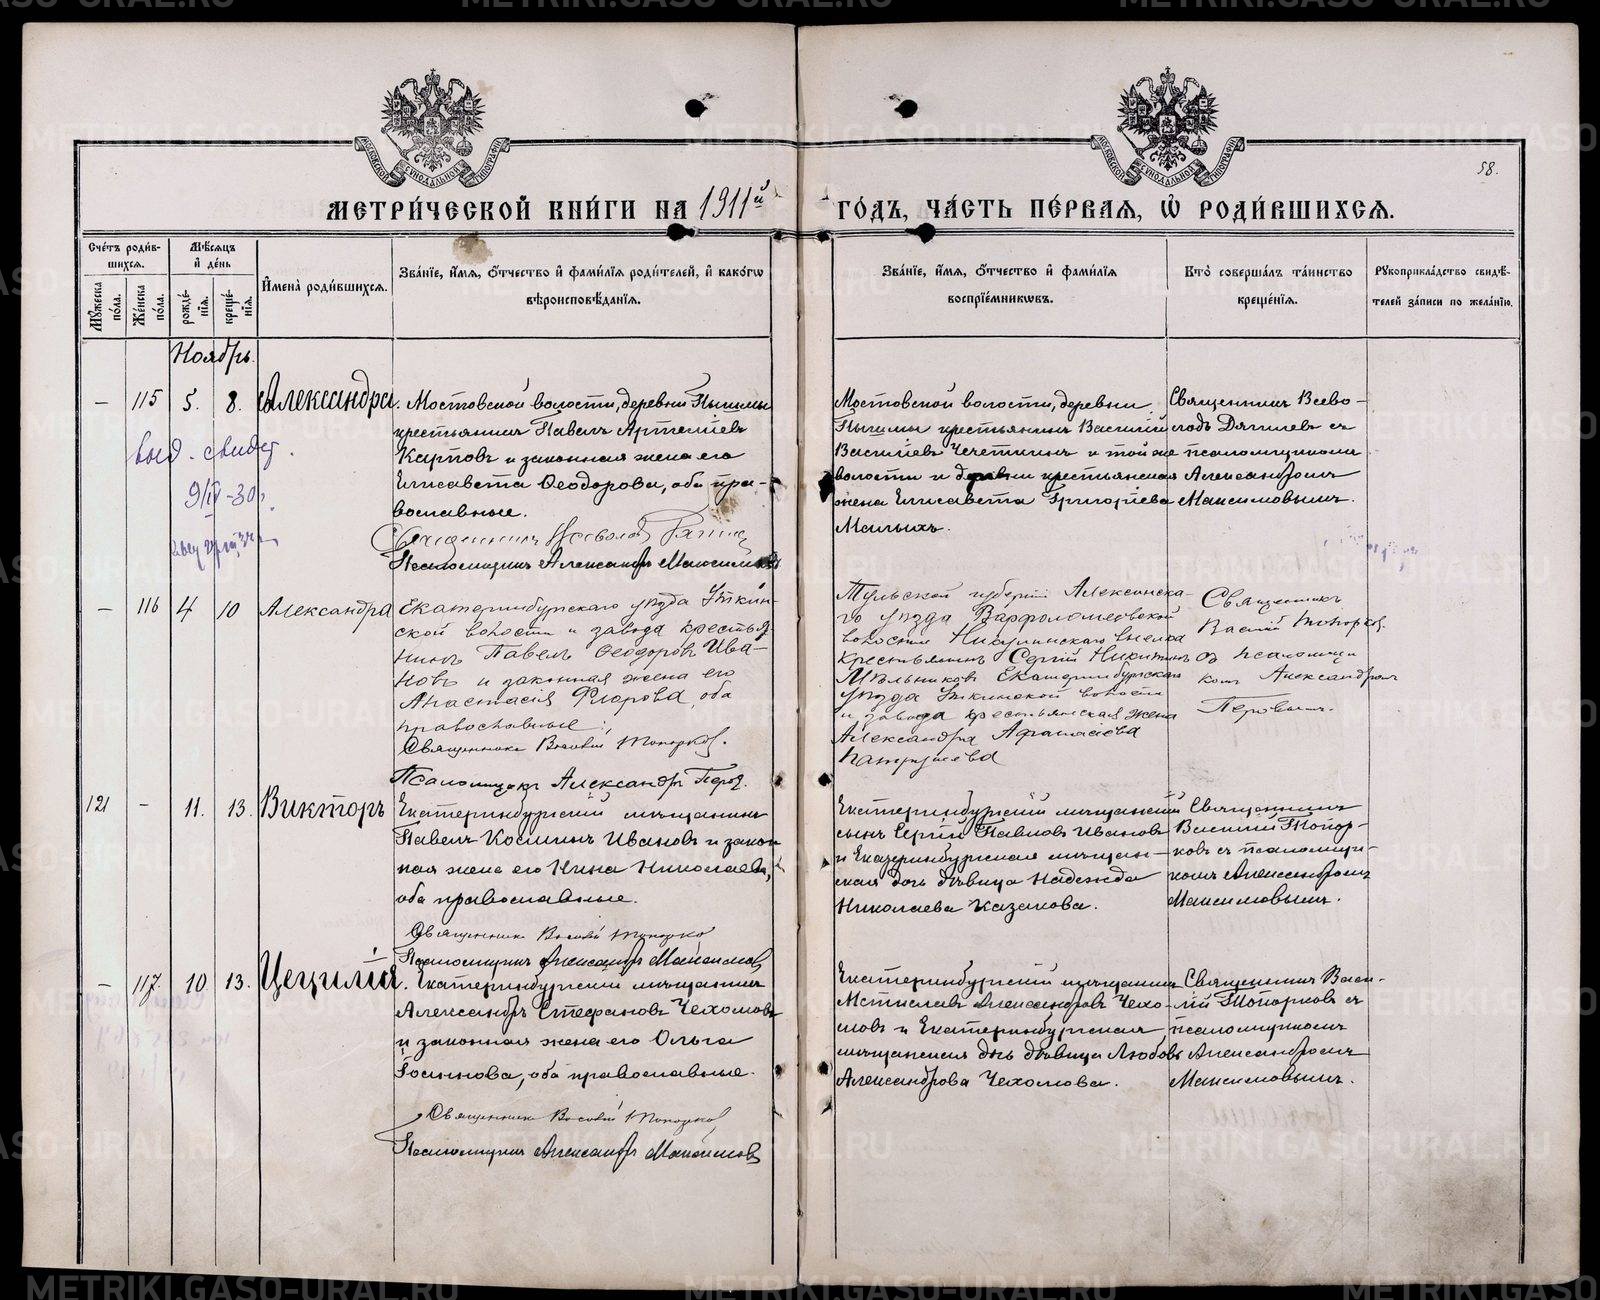 58.
МОСКОВСКОЙ СѴНОДАЛЬНОЙ ТИПОГРАФІИ
МОСКОВСКОЙ СѴНОДАЛЬНОЙ ТИПОГРАФІИ
МЕТРИ́ЧЕСКОЙ КНИ́ГИ НА 1911й ГО́ДЪ, ЧА́СТЬ ПЕ́РВАЯ, Ѡ РОДИ́ВШИХСѦ.
Сче́тъ роди́в-
шихсѧ.
Мꙋ́жеска по́ла.
Же́нска по́ла.
Мѣ́сѧцъ
и҆ де́нь
рожде́-
нїѧ.
креще́-
нїѧ.
И҆мена̀ роди́вшихсѧ.
Зва́нїе, и҆́мѧ, ѻ҆́тчество и҆ фами́лїѧ роди́телей, и҆ како́гѡ
вѣроисповѣ́данїѧ.
Зва́нїе, и҆́мѧ, ѻ҆́тчество и҆ фами́лїѧ
воспрїе́мникѡвъ.
Кто̀ соверша́лъ та́инство
креще́нїѧ.
Рꙋкоприкла́дство свидѣ́-
телей за́писи по жела́нїю.
Ноябрь.
— 115 5. 8. Александра.
Мостовской волости, деревни Пышмы
крестьянин Павелъ Артемiевъ
Карповъ и законная жена его
Елисавета Ѳеодорова, оба пра-
вославные.
Священникъ Всеволодъ
Псаломщикъ Александръ Максимовъ
выд. свидет.
9/IV-30г.
Мостовской волости, деревни
Пышмы крестьянинъ Василiй
Василiевъ Чечеткинъ и той же
волости и деревни крестьянская
жена Елисавета Григорiева
Малыхъ.
Священникъ Всево-
лодъ Дягилевъ съ
псаломщикомъ
Александромъ
Максимовымъ.
— 116 4 10 Александра
Екатеринбургскаго уѣзда Уткин-
ской волости и завода крестья-
нинъ Павелъ Ѳеодоровъ Ива-
новъ и законная жена его
Анастасiя Флорова, оба
православные;
Священникъ Василiй Топорковъ.
Псаломщикъ Александръ Перов.
Тульской губернiи Алексинска-
го уѣзда Варфоломеевской
волости
крестьянинъ Сергiй Никитинъ
Мѣльниковъ Екатеринбургскаго
уѣзда Уткинской волости
и завода крестьянская жена
Александра Афанасiева
Священникъ
Василiй Топорков
съ псаломщи
комъ Александром
Перовымъ.
121 — 11. 13. Викторъ
Екатеринбургскiй мѣщанинъ
Павелъ Косминъ Ивановъ и закон
ная жена его Нина Николаева,
оба православные.
Священникъ Василiй Топорков
Псаломщикъ Александръ Максимов
Екатеринбургскiй мѣщанскiй
сынъ Сергiй Павловъ Ивановъ
и Екатеринбургская мѣщан-
ская дочь дѣвица Надежда
Николаева Казакова.
Священникъ
Василiй Топор-
ковъ съ псаломщи-
комъ Александромъ
Максимовымъ.
— 117. 10 13. Цецилiя.
Екатеринбургскiй мѣщанинъ
Александръ Стефановъ Чехомовъ
и законная жена его Ольга
Iосифова, оба православные.
Священникъ Василiй Топорков
Псаломщикъ Александръ Максимов
Екатеринбургскiй мѣщанинъ
Мстиславъ Александровъ Чехо-
мовъ и Екатеринбургская
мѣщанская дочь дѣвица Любовь
Александрова Чехомова.
Священникъ Васи-
лiй Топорковъ съ
псаломщикомъ
Александромъ
Максимовымъ.
METRIKI.GASO-URAL.RU